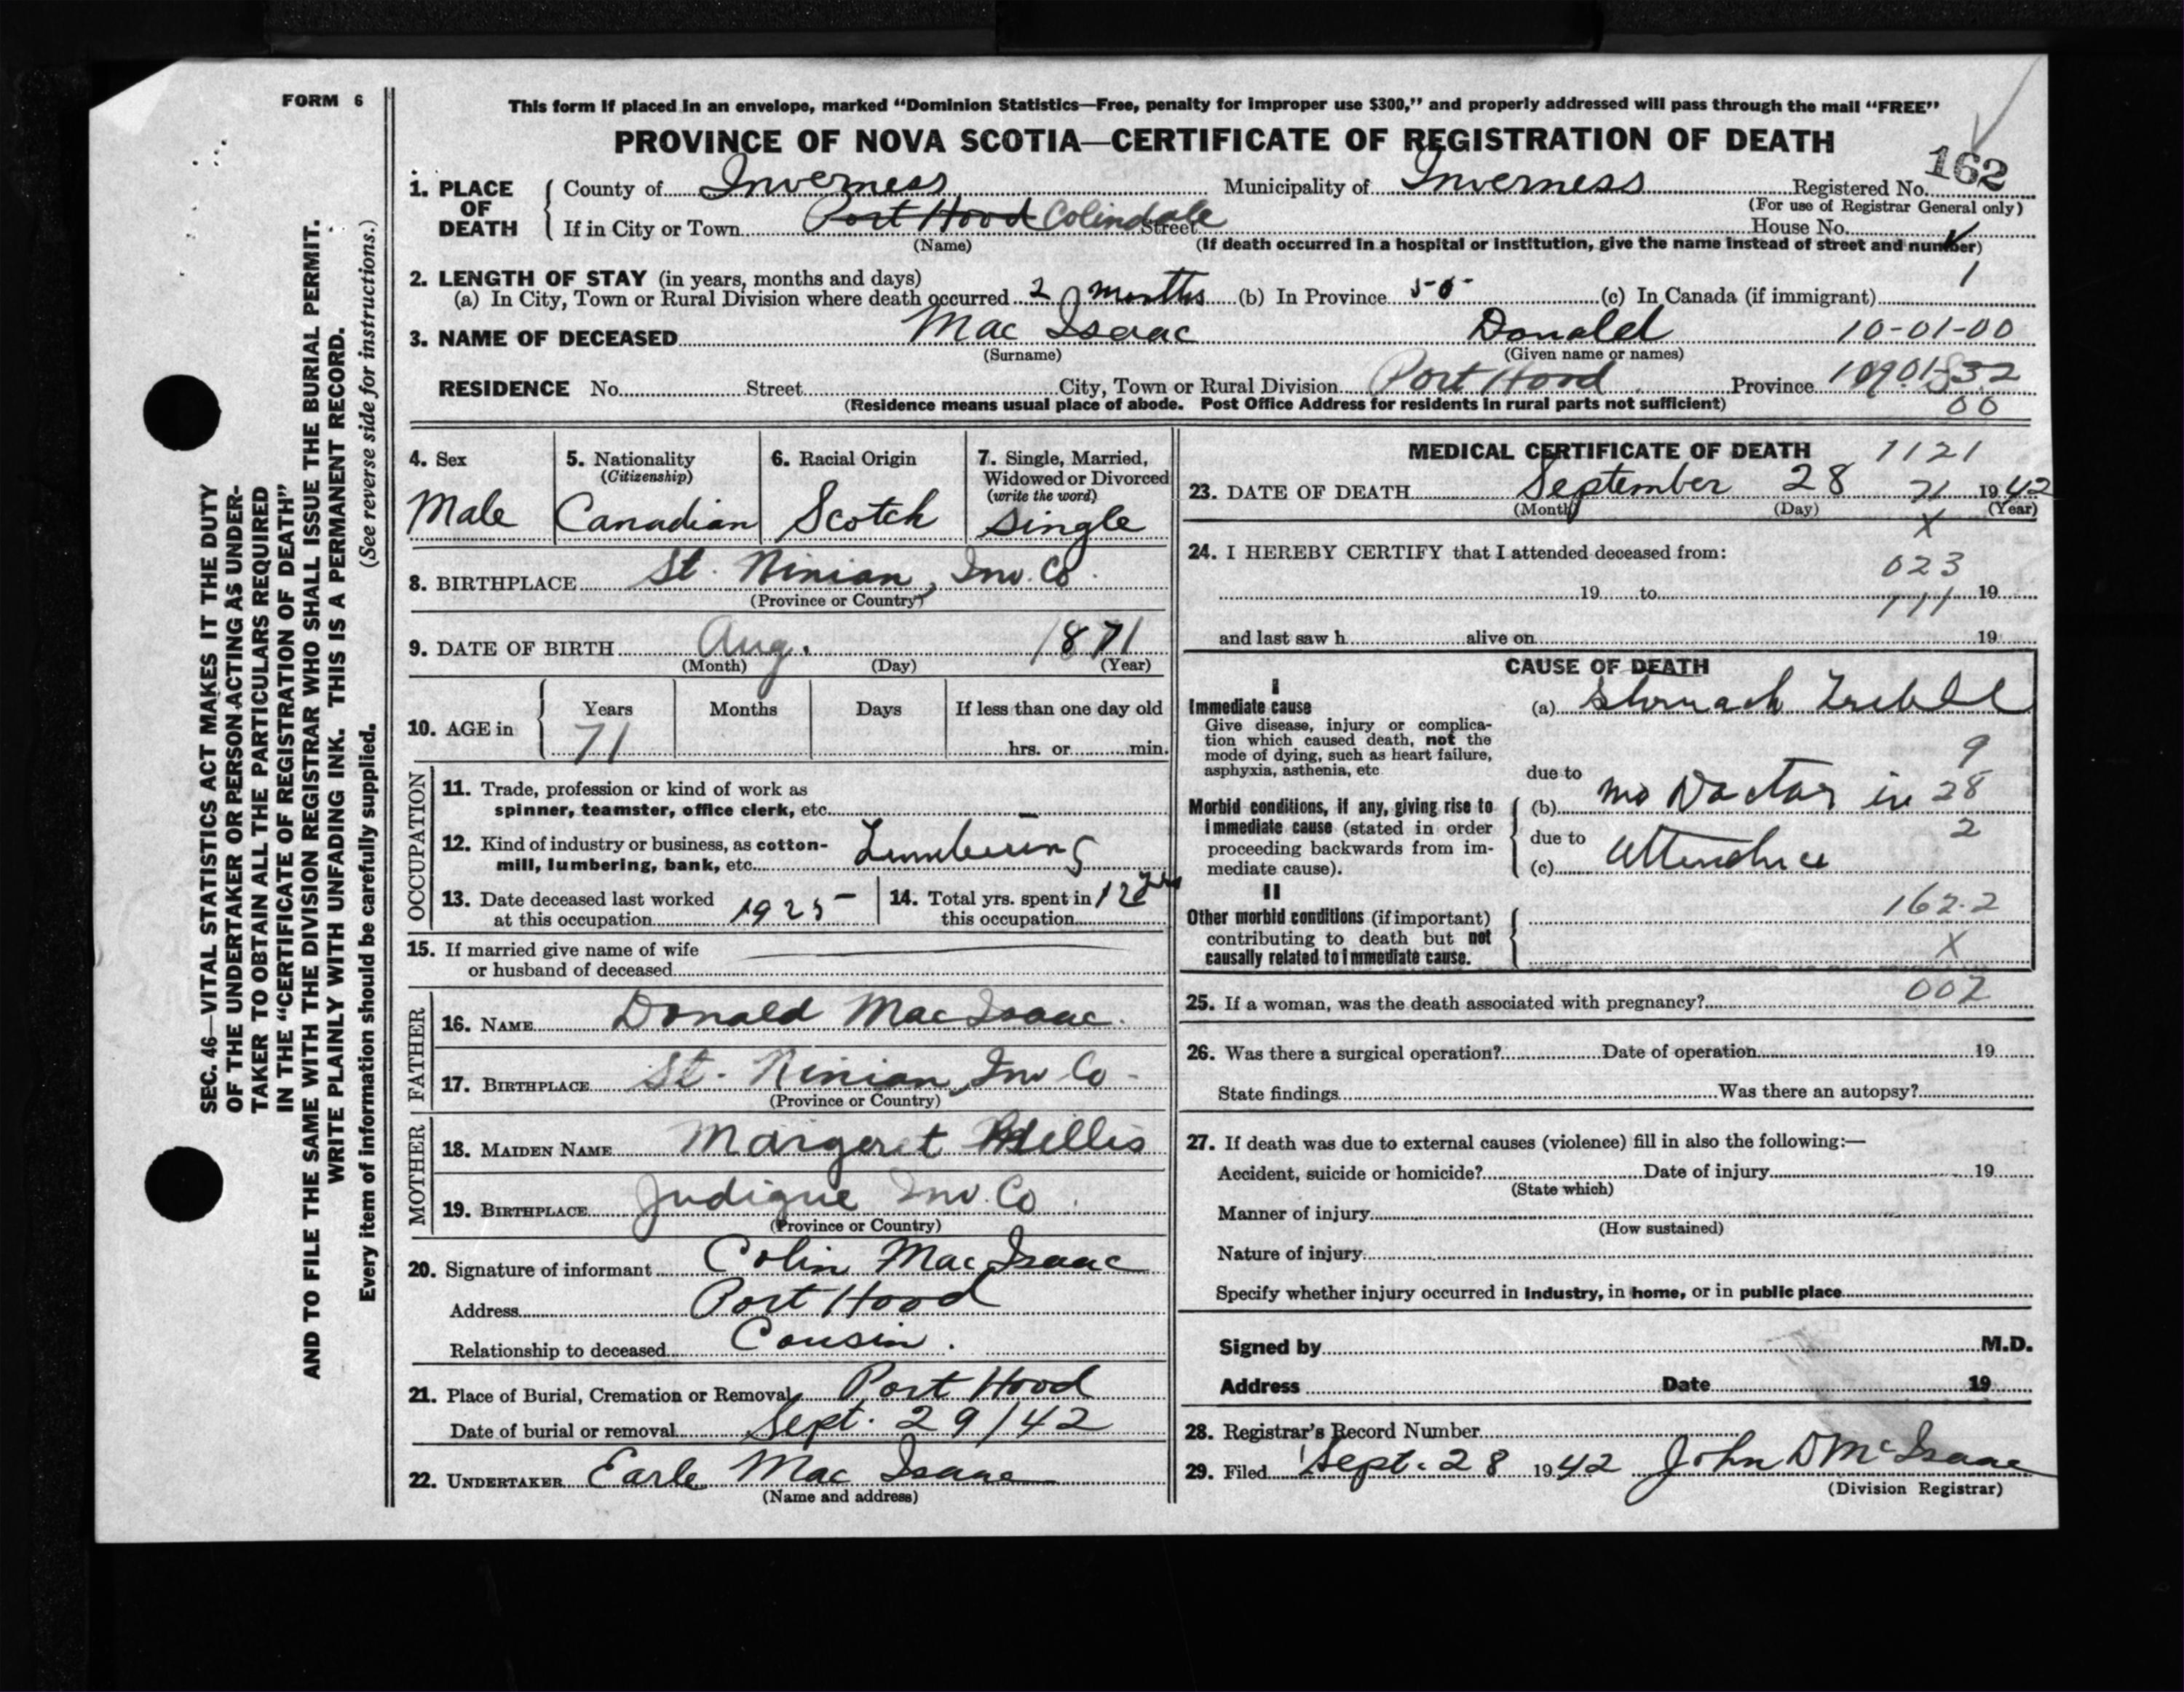 FORM 6
This form if placed in an envelope, marked "Dominion Statistics—Free, penalty for improper use $300," and properly addressed will pass through the mail "FREE"
PROVINCE OF NOVA SCOTIA—CERTIFICATE OF REGISTRATION OF DEATH
162
1. PLACE OF DEATH County of Inverness Municipality of Inverness Registered No.
(For use of Registrar General only)
If in City or Town Port Hood Colindale Street House No.
(Name) (If death occurred in a hospital or institution, give the name instead of street and number)
2. LENGTH OF STAY (in years, months and days) 1
(a) In City, Town or Rural Division where death occurred 2 months (b) In Province (c) In Canada (if immigrant)
3. NAME OF DECEASED Mac Isaac Donald 10-01-00
(Surname) (Given name or names)
RESIDENCE No. Street City, Town or Rural Division Port Hood Province
(Residence means usual place of abode. Post Office Address for residents in rural parts not sufficient) 00
4. Sex 5. Nationality 6. Racial Origin 7. Single, Married,
(Citizenship) Widowed or Divorced
(write the word)
Male Canadian Scotch Single
8. BIRTHPLACE St. Ninian, Inv. Co.
(Province or Country)
9. DATE OF BIRTH Aug. 1871
(Month) (Day) (Year)
10. AGE in Years Months Days If less than one day old
71 hrs. or min.
OCCUPATION
11. Trade, profession or kind of work as
spinner, teamster, office clerk, etc. —
12. Kind of industry or business, as cotton-
mill, lumbering, bank, etc. Lumbering
13. Date deceased last worked 14. Total yrs. spent in 12 yrs
at this occupation 1925 this occupation
15. If married give name of wife
or husband of deceased
FATHER
16. NAME Donald MacIsaac
17. BIRTHPLACE St. Ninian, Inv Co
(Province or Country)
MOTHER
18. MAIDEN NAME Margeret
19. BIRTHPLACE Judique Inv. Co.
(Province or Country)
20. Signature of informant Colin MacIsaac
Address Port Hood
Relationship to deceased Cousin.
21. Place of Burial, Cremation or Removal Port Hood
Date of burial or removal Sept. 29/42
22. UNDERTAKER Earle Mac Isaac
(Name and address)
MEDICAL CERTIFICATE OF DEATH 1121
23. DATE OF DEATH September 28 71 1942
(Month) (Day) (Year)
X
24. I HEREBY CERTIFY that I attended deceased from:
023
19 to 19
111
and last saw h alive on 19
CAUSE OF DEATH
I
Immediate cause (a) Stomach Trubll
Give disease, injury or complica-
tion which caused death, not the
mode of dying, such as heart failure,
asphyxia, asthenia, etc. 9
due to
Morbid conditions, if any, giving rise to (b) no Doctor in 28
immediate cause (stated in order due to 2
proceeding backwards from im-
mediate cause). (c)
II 162.2
Other morbid conditions (if important)
contributing to death but not X
causally related to immediate cause.
25. If a woman, was the death associated with pregnancy? 002
26. Was there a surgical operation? Date of operation 19
State findings Was there an autopsy?
27. If death was due to external causes (violence) fill in also the following:—
Accident, suicide or homicide? Date of injury 19
(State which)
Manner of injury
(How sustained)
Nature of injury
Specify whether injury occurred in industry, in home, or in public place
Signed by M.D.
Address Date 19
28. Registrar's Record Number
29. Filed Sept. 28 1942 John D McIsaac
(Division Registrar)
SEC. 46—VITAL STATISTICS ACT MAKES IT THE DUTY
OF THE UNDERTAKER OR PERSON ACTING AS UNDER-
TAKER TO OBTAIN ALL THE PARTICULARS REQUIRED
IN THE "CERTIFICATE OF REGISTRATION OF DEATH"
AND TO FILE THE SAME WITH THE DIVISION REGISTRAR WHO SHALL ISSUE THE BURIAL PERMIT.
WRITE PLAINLY WITH UNFADING INK. THIS IS A PERMANENT RECORD.
Every item of information should be carefully supplied. (See reverse side for instructions.)